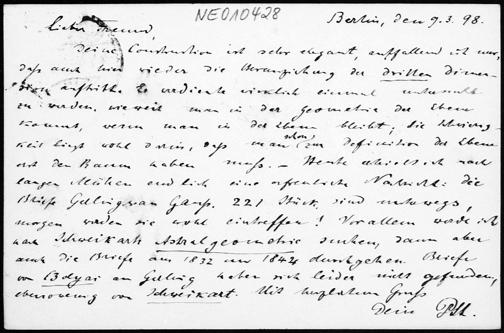 NE010428
Berlin, den 9.3.98.
Lieber Freund,
Deine Construction ist sehr elegant, auffallend ist nur,
daß auch hier wieder die Heranziehung der dritten Dimen-
sion auftritt. Es verdiente wirklich einmal untersucht
zu werden, wie weit man in der Geometrie der Ebene
kommt, wenn man in der Ebene bleibt; die Schwierig-
keit liegt wohl darin, daß man schon zur Definition der Ebene
erst den Raum haben muß. – Heute erhielt ich nach
langen Mühen endlich eine erfreuliche Nachricht: die
Briefe Gerlings an Gauss, 221 Stück, sind unterwegs,
morgen werden sie wohl eintreffen! Vor allem werde ich
nach Schweikarts Astralgeometrie suchen, dann aber
auch die Briefe von 1832 und 1844 durchgehen. Briefe
von Bolyai an Gerling haben sich leider nicht gefunden,
ebensowenig von Schweikart. Mit herzlichem Gruß
Dein